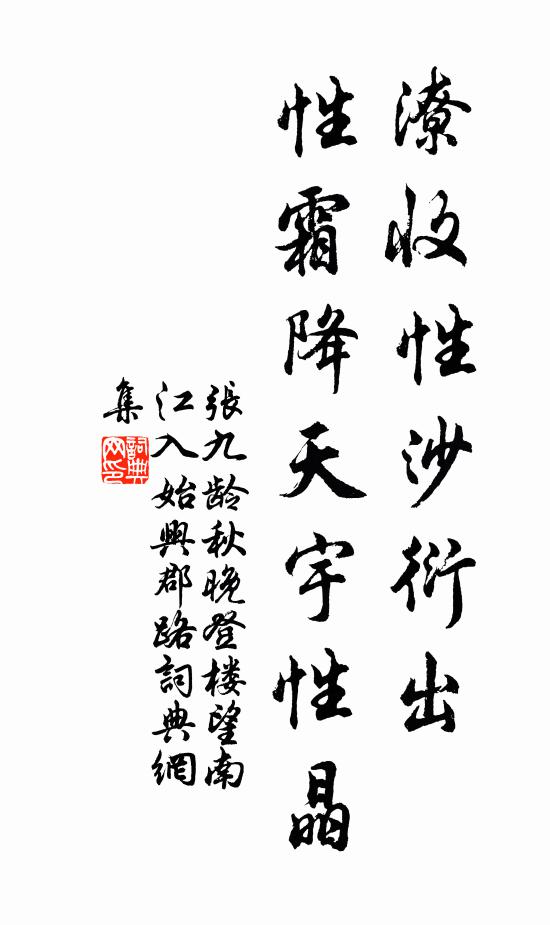 潦收性沙衍出
性霜降天宇性晶
張九龄秋晚登楼望南
江入始興郡路詞典網
集
詞典网印